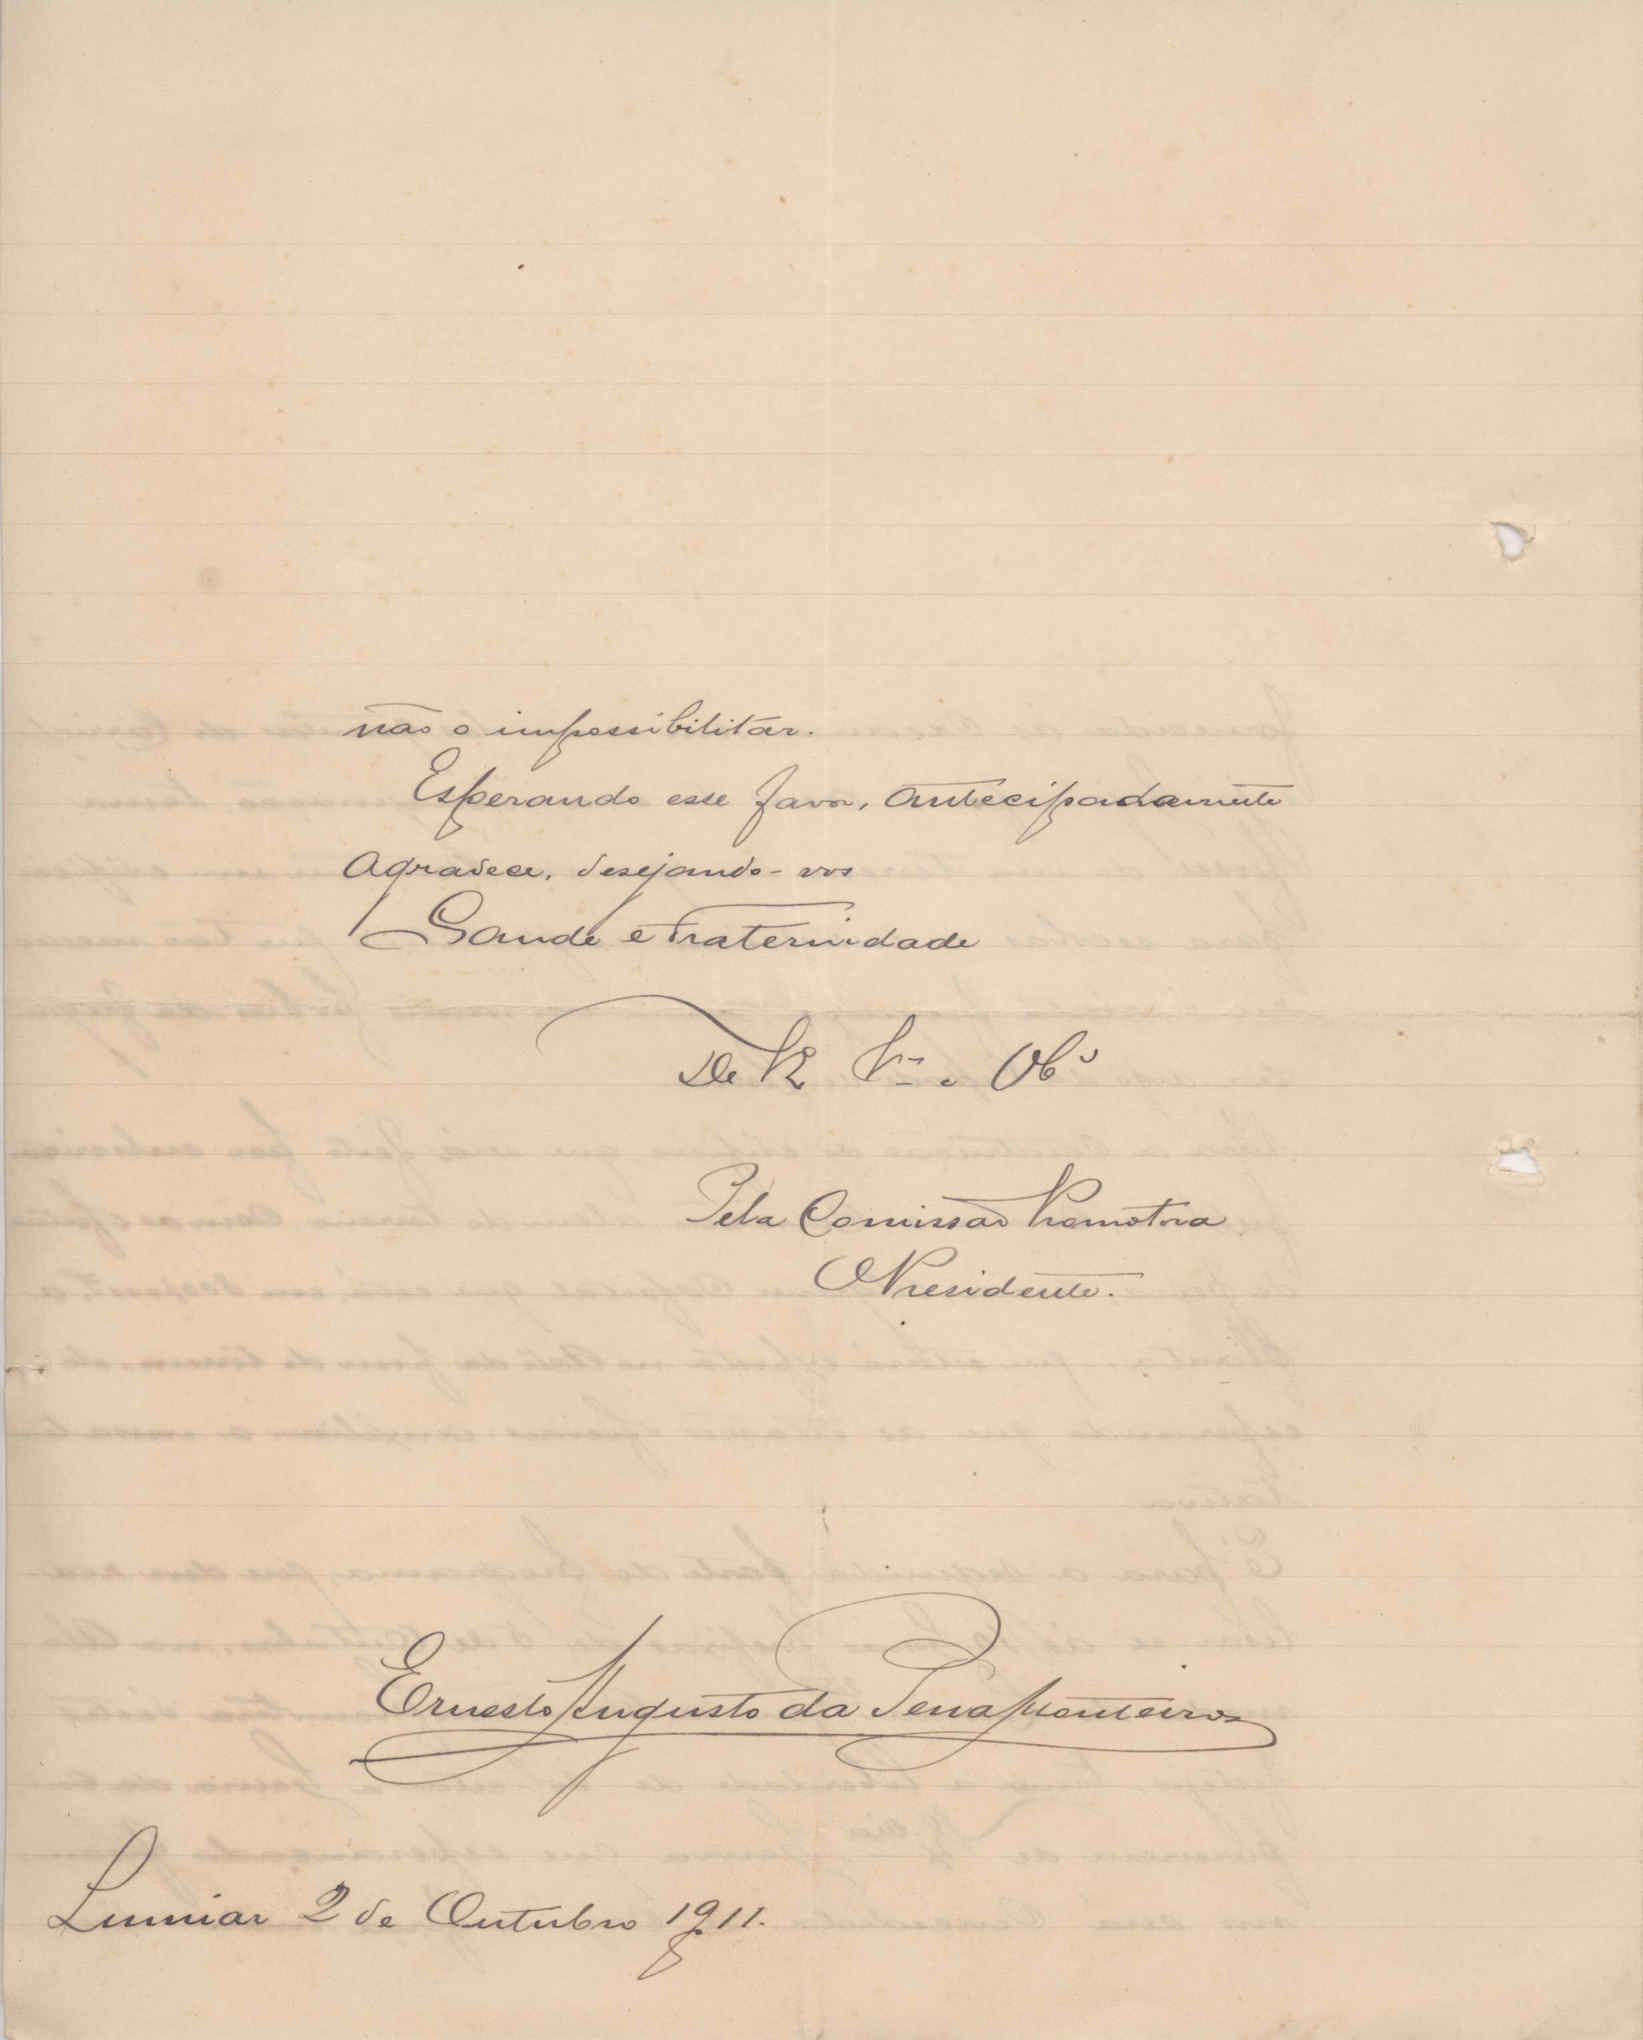 não o impossibilitar.
Esperando esse favor, antecipadamente
agradece, desejando-vos
Saude e Fraternidade
De V. Ex.
Pela Comissão Promotora
O Presidente.
Ernesto Augusto da Pena Monteiro
Lumiar 2 de Outubro 1911.